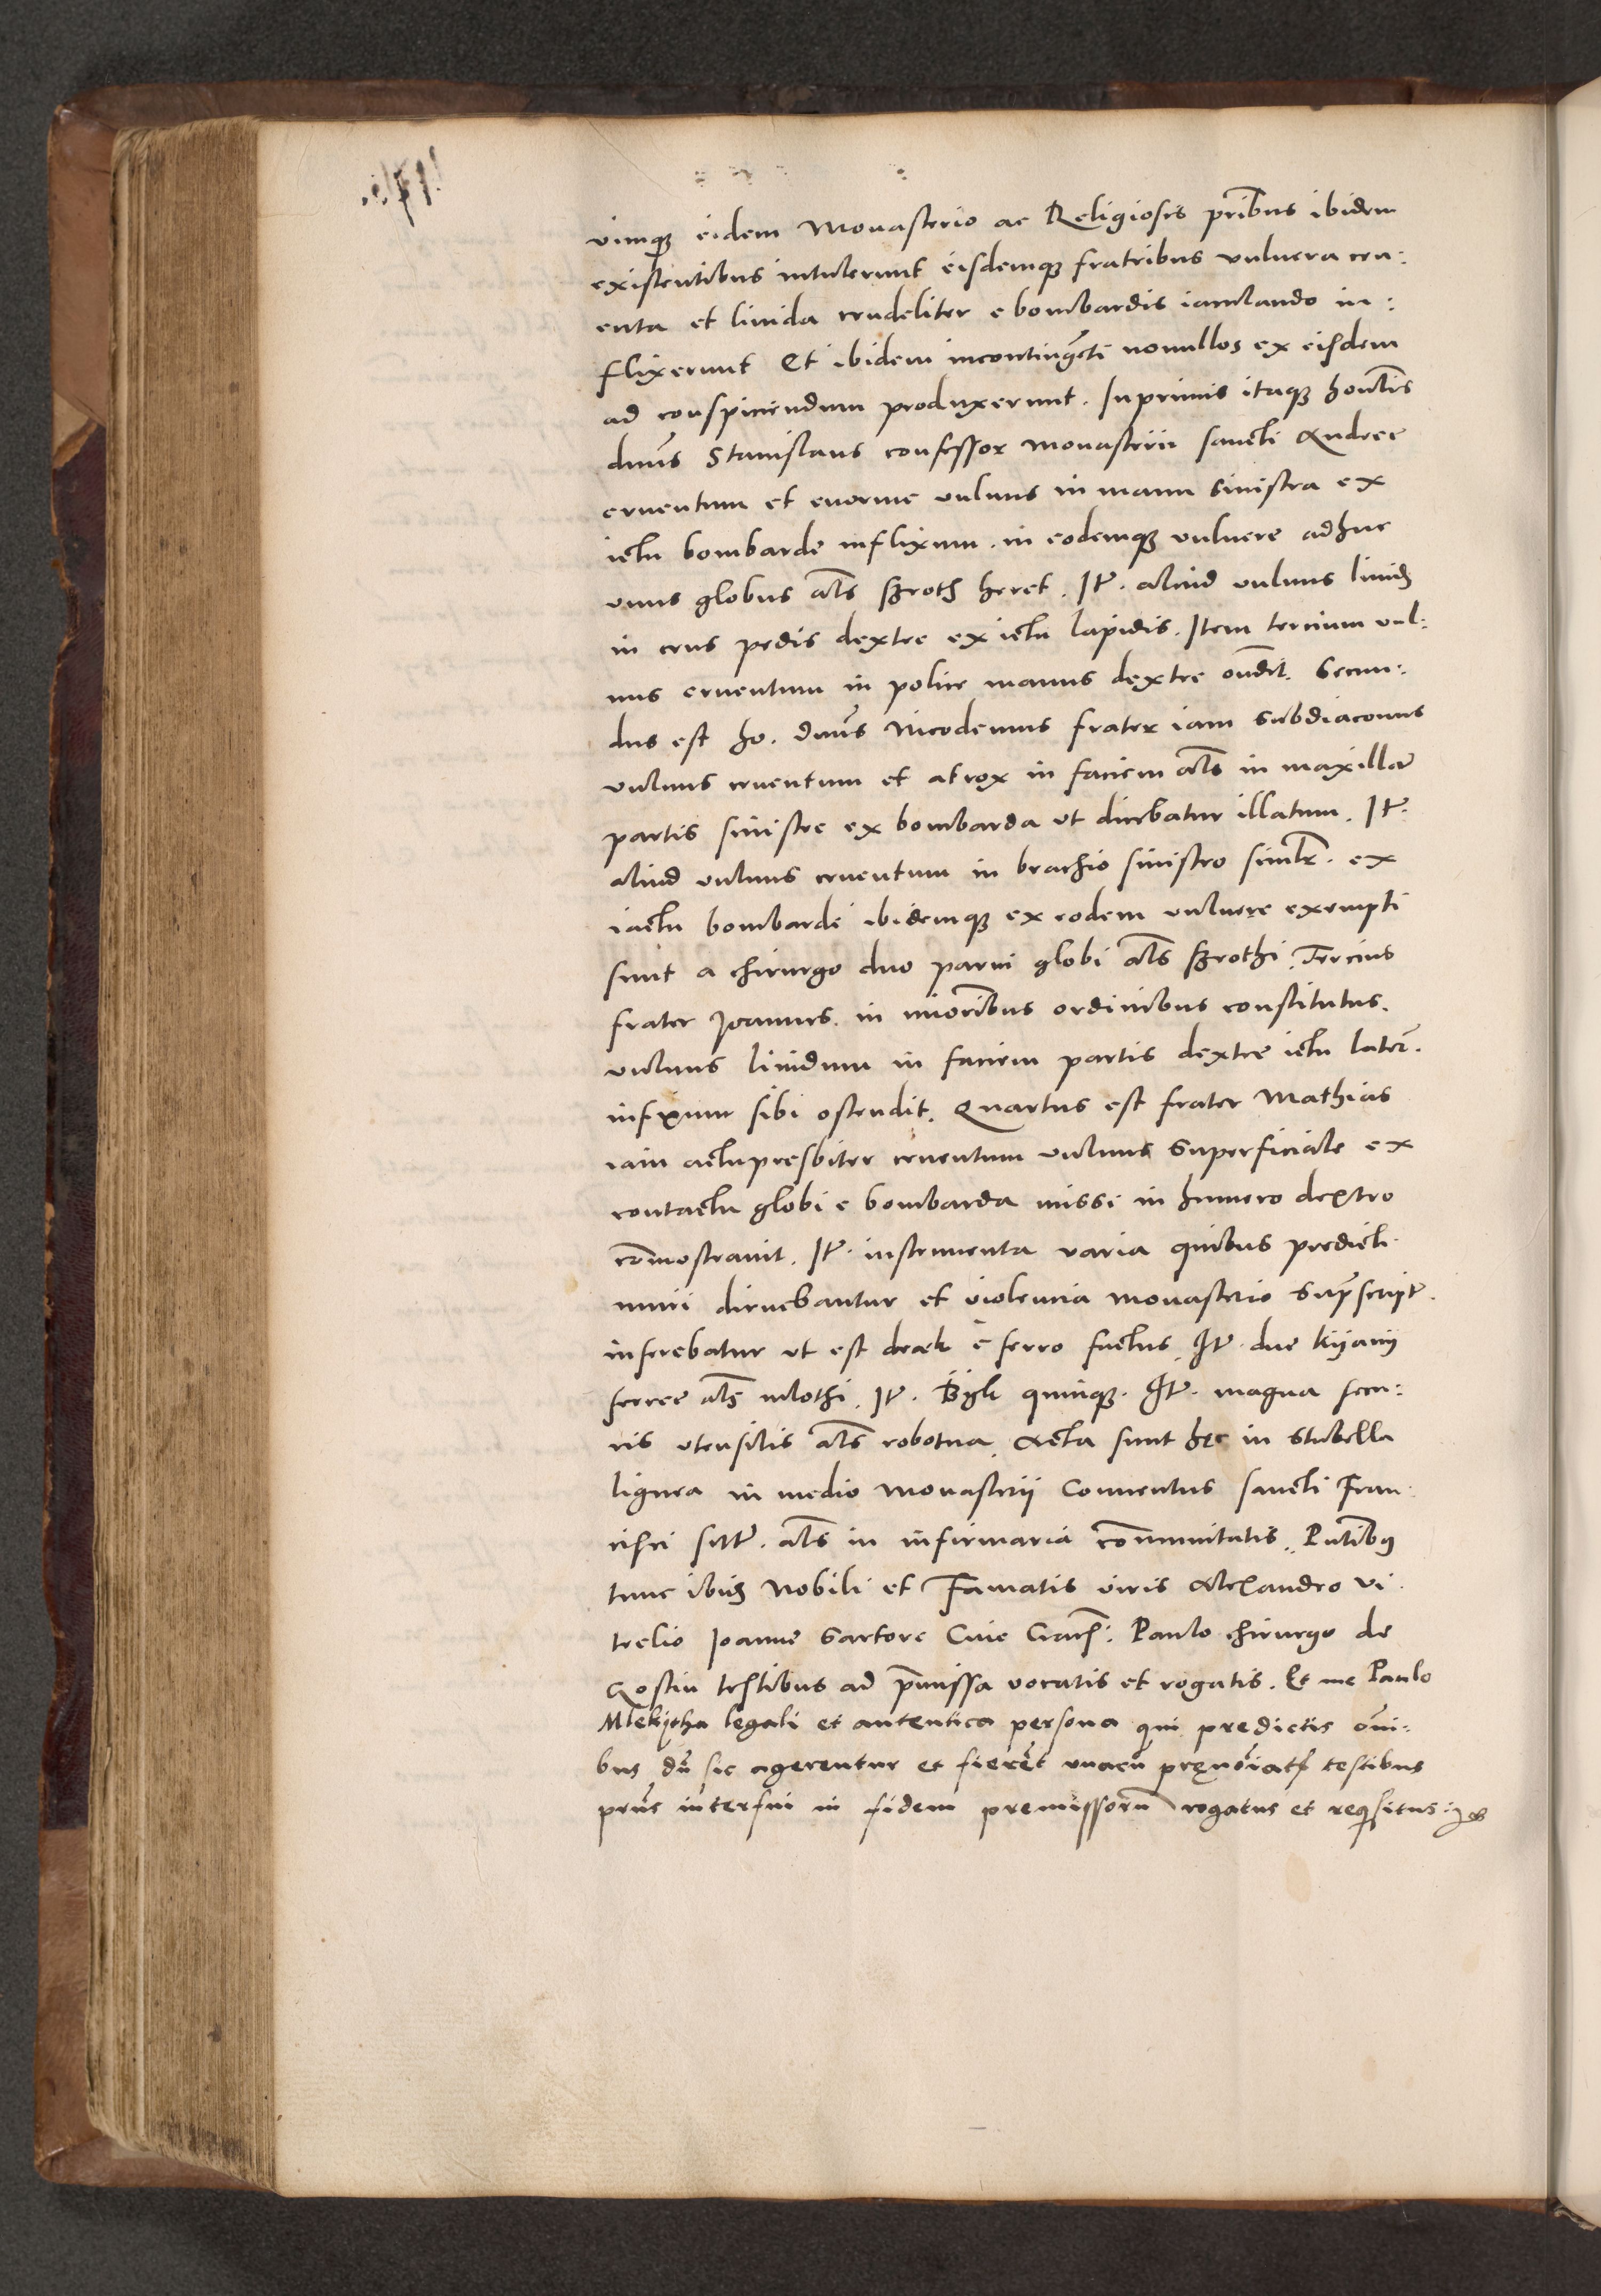 vimq3 eidem Monasterio ac Religiosis pribus ibidem
existentibus intulerunt eisdemq3 fratribus vulnera cru:
enta et liuida crudeliter e bombardis iaculando in:
flixerunt Et ibidem incontingenti nonullos ex eisdem
ad conspiciendum produxerunt. Inprimis itaq3 honblis
dnus Stanislaus confessor monasterii sancti Andree
cruentum et enorme vulnus in manu sinistra ex
ictu bombarde inflixum. in eodemq3 vulnere adhuc
vnus globus als szroth heret. Itr. aliud vulnus liuid
in crus pedis dextre ex ictu lapidis. Item tercium vul:
nus cruentum in police manus dextre ondit. Secun:
dus est ho. dnus Nicodemus frater iam Subdiaconus
vulnus cruentum et atrox in faciem als in maxillam
partis sinistre ex bombarda vt dicebatur illatum. Itr.
aliud vulnus cruentum in brachio sinistro simlr. ex
iactu bombarde ibidemq3 ex eodem vulnere exempti
sunt a chirurgo duo parui globi als szrothi. Tercius
frater Joannes. in mioribus ordinibus constitutus.
vulnus liuidum in faciem partis dextre ictu later.
infixum sibi ostendit. Quartus est frater Mathias
iam actu presbiter cruentum vulnus Superficiale ex
contactu globi e bombarda missi in humero dextro
comostrauit. Itr. instrumenta varia quibus predicti
muri diruebantur et violencia monasterio Supscript.
inferebatur vt est drak e ferro factus. Itr. due kijanij
ferree als mlothi. Itr. Bijk quinq3. Itr. magna secu:
ris vtensilis als robotna. Acta sunt hec in Stubella
lignea in medio monasterii Conuentus sancti Fran
cisci sitt. als in infirmaria communitatis. Pntibus
tunc ibid Nobili et Famatis viris Alexandro Vi
trelio Joanne Sartore Ciue Crac. Paulo chirurgo de
Costen testibus ad pmissa vocatis et rogatis. Et me Paulo
Mlekijtha legali et autentica persona qui predictis omi:
bus du sic agerentur et fierent vnacu prenoiatis testibus
pns interfui in fidem premissoru rogatus et reqsitus: